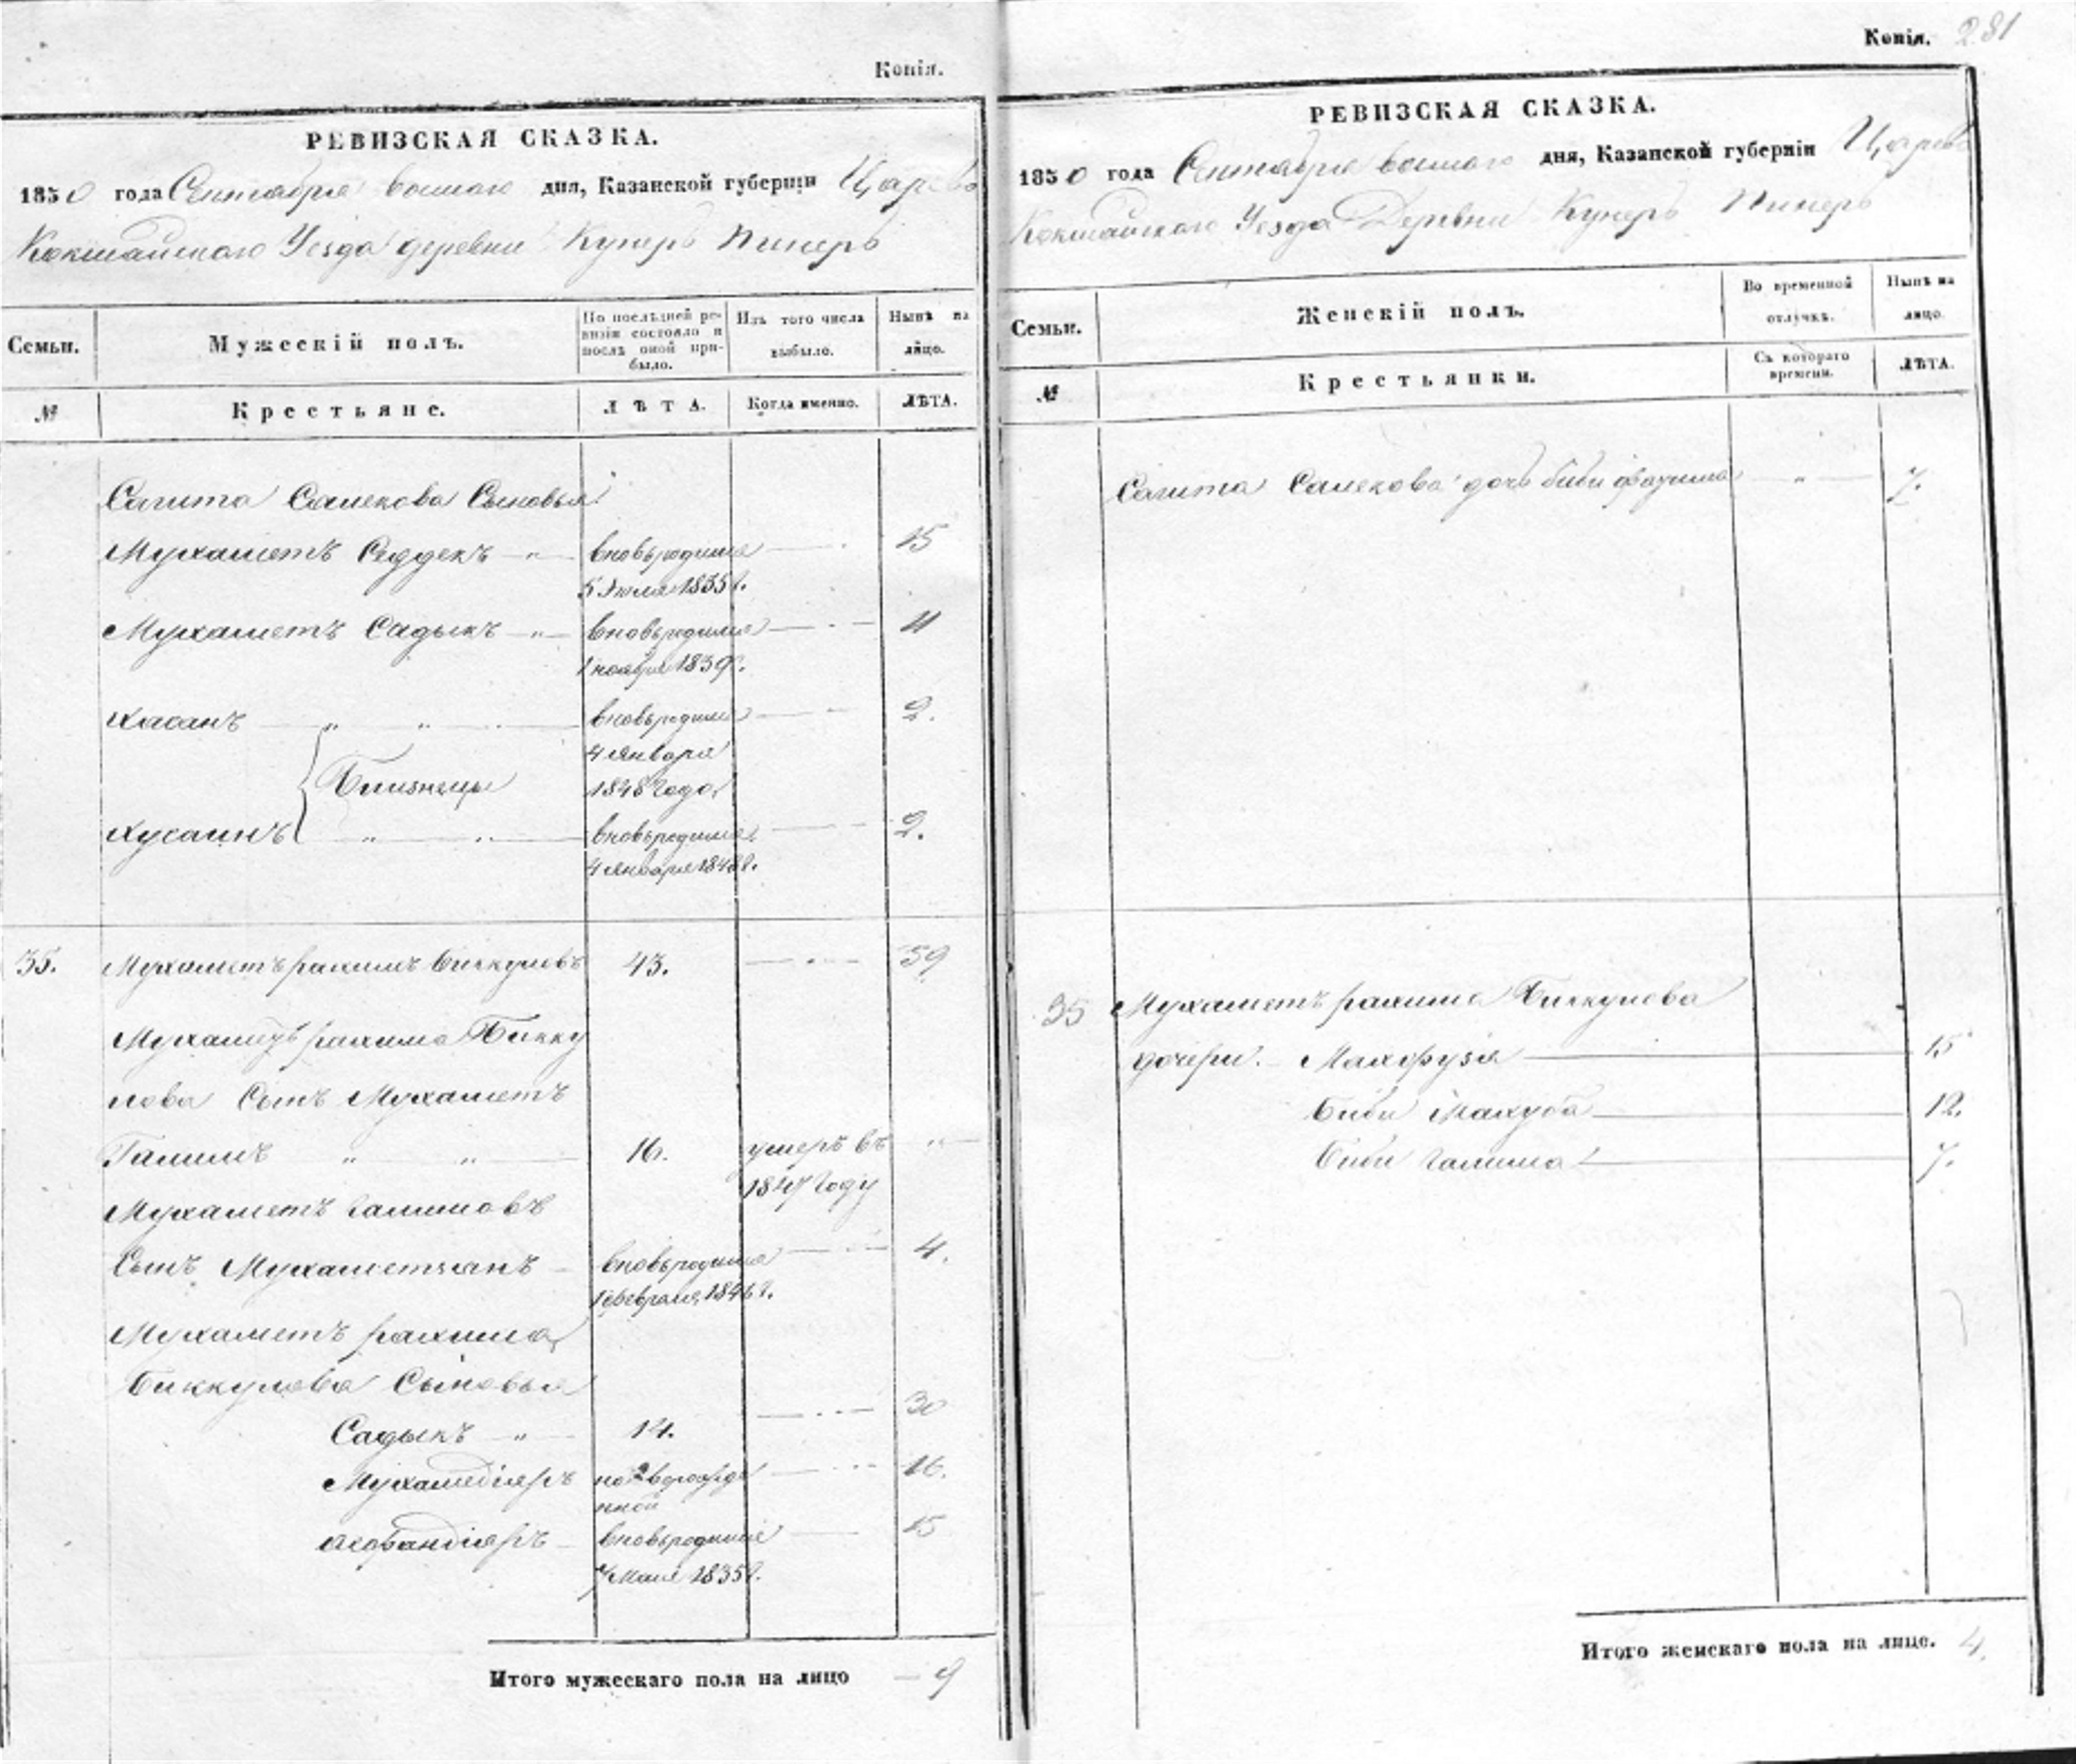 Копія.
РЕВИЗСКАЯ СКАЗКА.
1850 года Сентября восмаго дня, Казанской губерніи Царево
Кокшайскаго Уезда деревни Кунеръ
Семьи.
Мужескій полъ.
По послѣдней ре-
визіи состояло и
послѣ оной при-
было.
Изъ того числа
выбыло.
Нынѣ на
лицо.
№
Крестьяне.
ЛѢТА.
Когда именно.
ЛѢТА.
Сагита Салекова Сыновья
Мухаметъ Седдекъ " вновьродился 15
5 Июля 1835 г.
Мухаметъ Садыкъ " вновьродился 11
1 ноября 1839 г.
Хасанъ " " вновьродился 2.
4 Января
Близнецы 1848 года
Хусаинъ " " вновьродился 2.
4 января 1848 г.
35. Мухаметърахимъ Биккуловъ 43. " 59
Мухаметърахима Бикку
лова Сынъ Мухаметъ
Галимъ " " 16. умеръ въ "
1847 году
Мухаметъ Галимовъ
Сынъ Мухаметзянъ вновьродился 4.
1 февраля 1846 г.
Мухаметъ рахима
Биккулова Сыновья
Садыкъ " 14. " 30
Мухамедіяръ новорожде 16.
нной
Исфандіяръ вновьродился 15
7 Мая 1835 г.
Итого мужескаго пола на лицо 9
Копія. 281
РЕВИЗСКАЯ СКАЗКА.
1850 года Сентября восмаго дня, Казанской губерніи Царево
Кокшайскаго Уезда Деревни Кунеръ
Семьи.
Женскій полъ.
Во временной
отлучкѣ.
Нынѣ на
лицо.
№
Крестьянки.
Съ котораго
времени.
ЛѢТА.
Сагита Салекова дочь Биби фазима " 7.
35 Мухаметърахима Биккулова
дочери. Махфузя 15
Биби Махуба 12.
Биби Галима 7.
Итого женскаго пола на лице. 4.